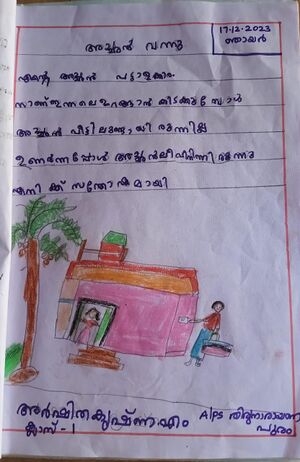 17-12-2023
ഞായർ
അച്ഛൻ വന്നു
എന്റെ അച്ഛൻ പട്ടാളക്കാരനാ
ഞാൻ ഇന്നലെ ഉറങ്ങാൻ കിടക്കുമ്പോൾ
അച്ഛൻ വീട്ടിലുണ്ടായിരുന്നില്ല
ഉണർന്നപ്പോൾ അച്ഛൻ
എനിക്ക് സന്തോഷമായി
അർഷിതകൃഷ്ണഎം
ക്ലാസ് - 1
Alps തിരുനാരായണ
പുരം